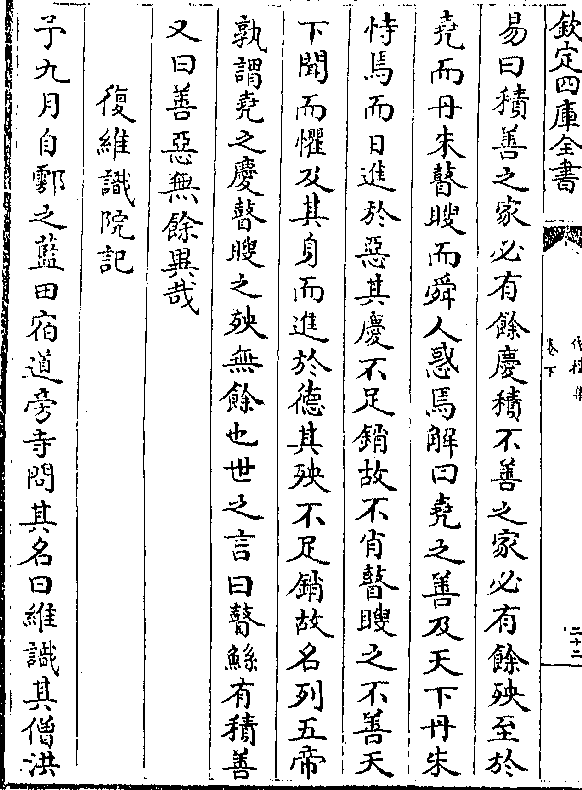 欽定四庫全書
卷下
二十二
易曰積善之家必有餘慶積不善之家必有餘殃至於
堯而丹朱瞽瞍而舜人惑焉解曰堯之善及天下丹朱
恃焉而日進於惡其慶不足銷故不肖瞽瞍之不善天
下聞而懼及其身而進於德其殃不足銷故名列五帝
孰謂堯之慶瞽瞍之殃無餘也世之言曰瞽鯀有積善
又曰善惡無餘異哉
復維識院記
予九月自鄠之藍田宿道旁寺問其名曰維識其僧洪